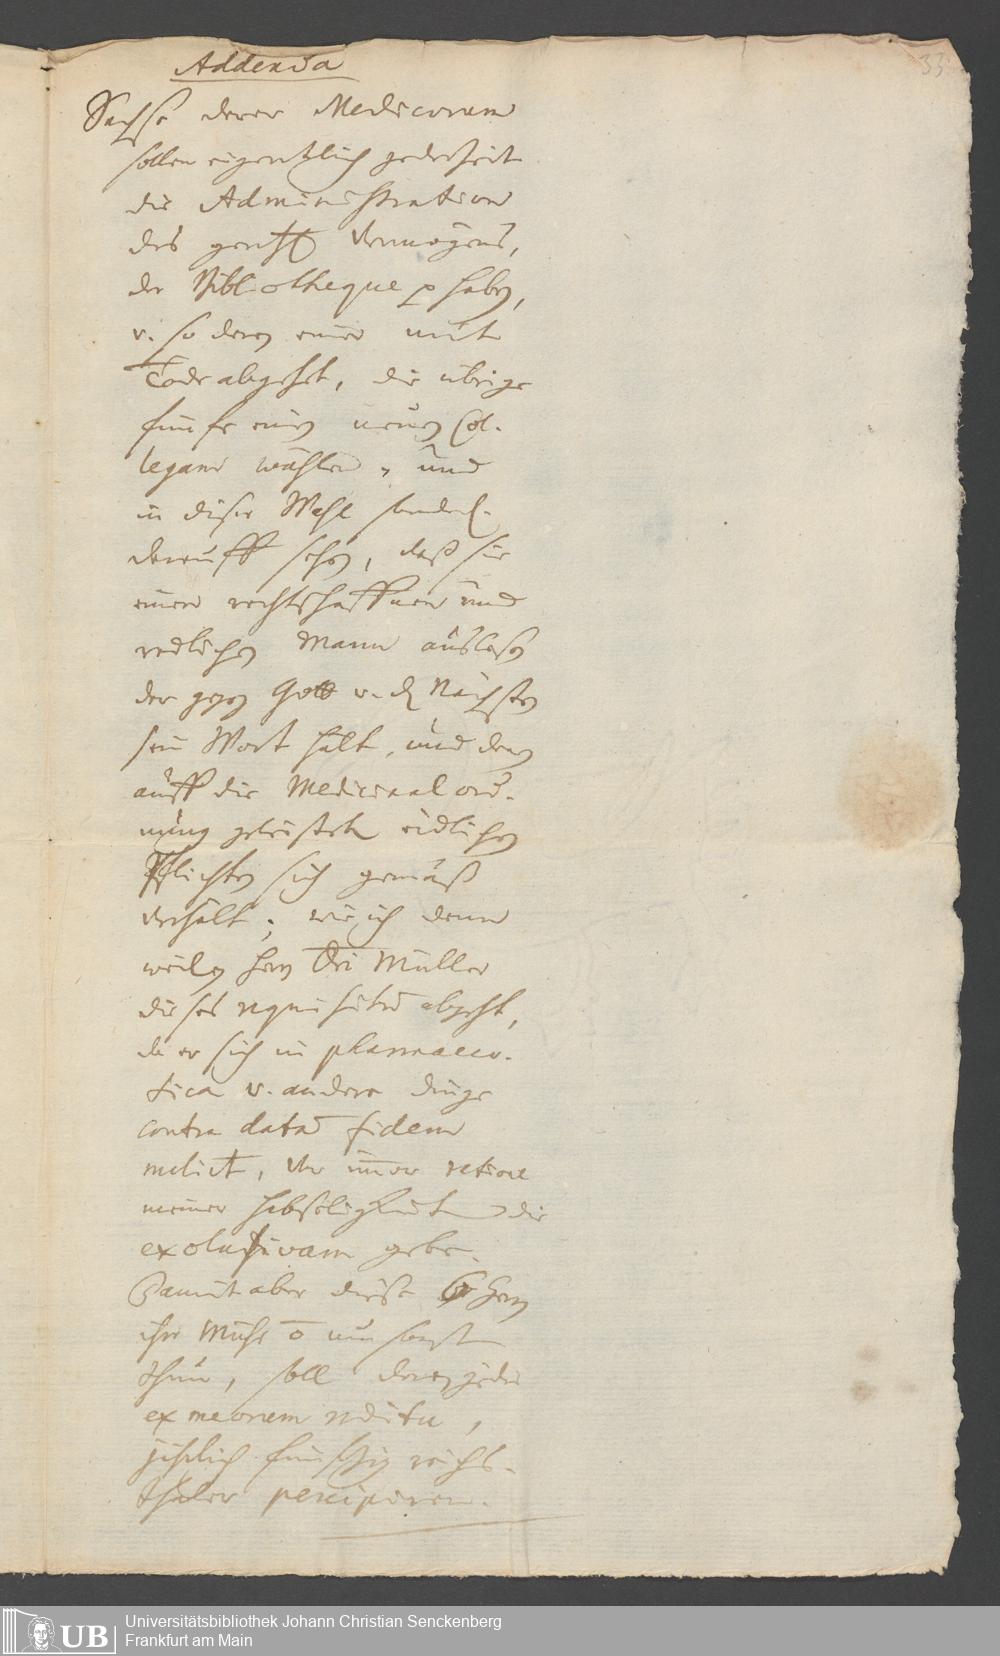 Addenda
33
Sechse derer Medicorum
sollen eigentlich jederzeit
die Administration
des Vermögens,
der Bibliotheque p haben,
v. so deren einer mit
Tode abgehet, die übrige
fünfe einen neuen Col-
legam wählen, und
in dieser Wahl
darauff sehen, daß sie
einen rechtschaffnen und
redlichen Mann auslesen
der gegen Gott v. d. Nächsten
sein Wort hält, und denen
auff die Medicinal ord-
nung geleisteten eidlichen
Pflichten sich gemäß
verhält; wie ich denn
weilen Hrn Dri Müller
dieses requisitum abgeht,
da er sich in pharmaceu-
tica v. andere dinge
contra datam fidem
melirt, Ihr immer ratione
meiner Habseligkeiten die
exclusivam gebe.
Damit aber diese Hrn
ihre Mühe umsonst
thun, soll deren jeder
ex meorum reditu,
jährlich funffzig reichs-
thaler percipiren.
Universitätsbibliothek Johann Christian Senckenberg
UB
Frankfurt am Main